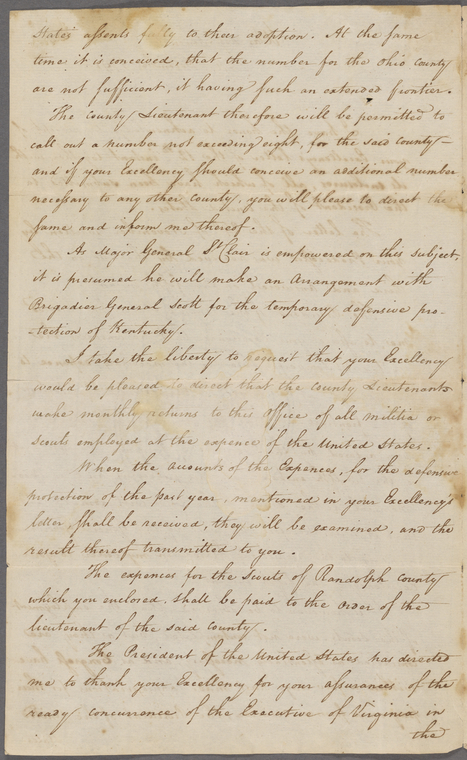 States assents fully to their adoption. At the same
time it is conceived, that the number for the Ohio County
are not sufficient, it having such an extended frontier.
The County Lieutenant therefore will be permitted to
call out a number not exceeding eight, for the said County—
and if your Excellency should conceive an additional number
necessary to any other County, you will please to direct the
same and inform me thereof.
As Major General St Clair is empowered on this subject,
it is presumed he will make an Arrangement with
Brigadier General Scott for the temporary defensive pro-
-tection of Kentucky.
I take the liberty to request that your Excellency
would be pleased to direct that the County Lieutenants
make monthly returns to this Office of all militia or
Scouts employed at the expence of the United States.
When the accounts of the Expences, for the defensive
protection of the past year, mentioned in your Excellency's
letter, shall be received, they will be examined, and the
result thereof transmitted to you.
The expences for the Scouts of Randolph County
which you enclosed. shall be paid to the order of the
lieutenant of the said County.
The President of the United States has directed
me to thank your Excellency for your assurances of the
ready concurrance of the Executive of Virginia in
the